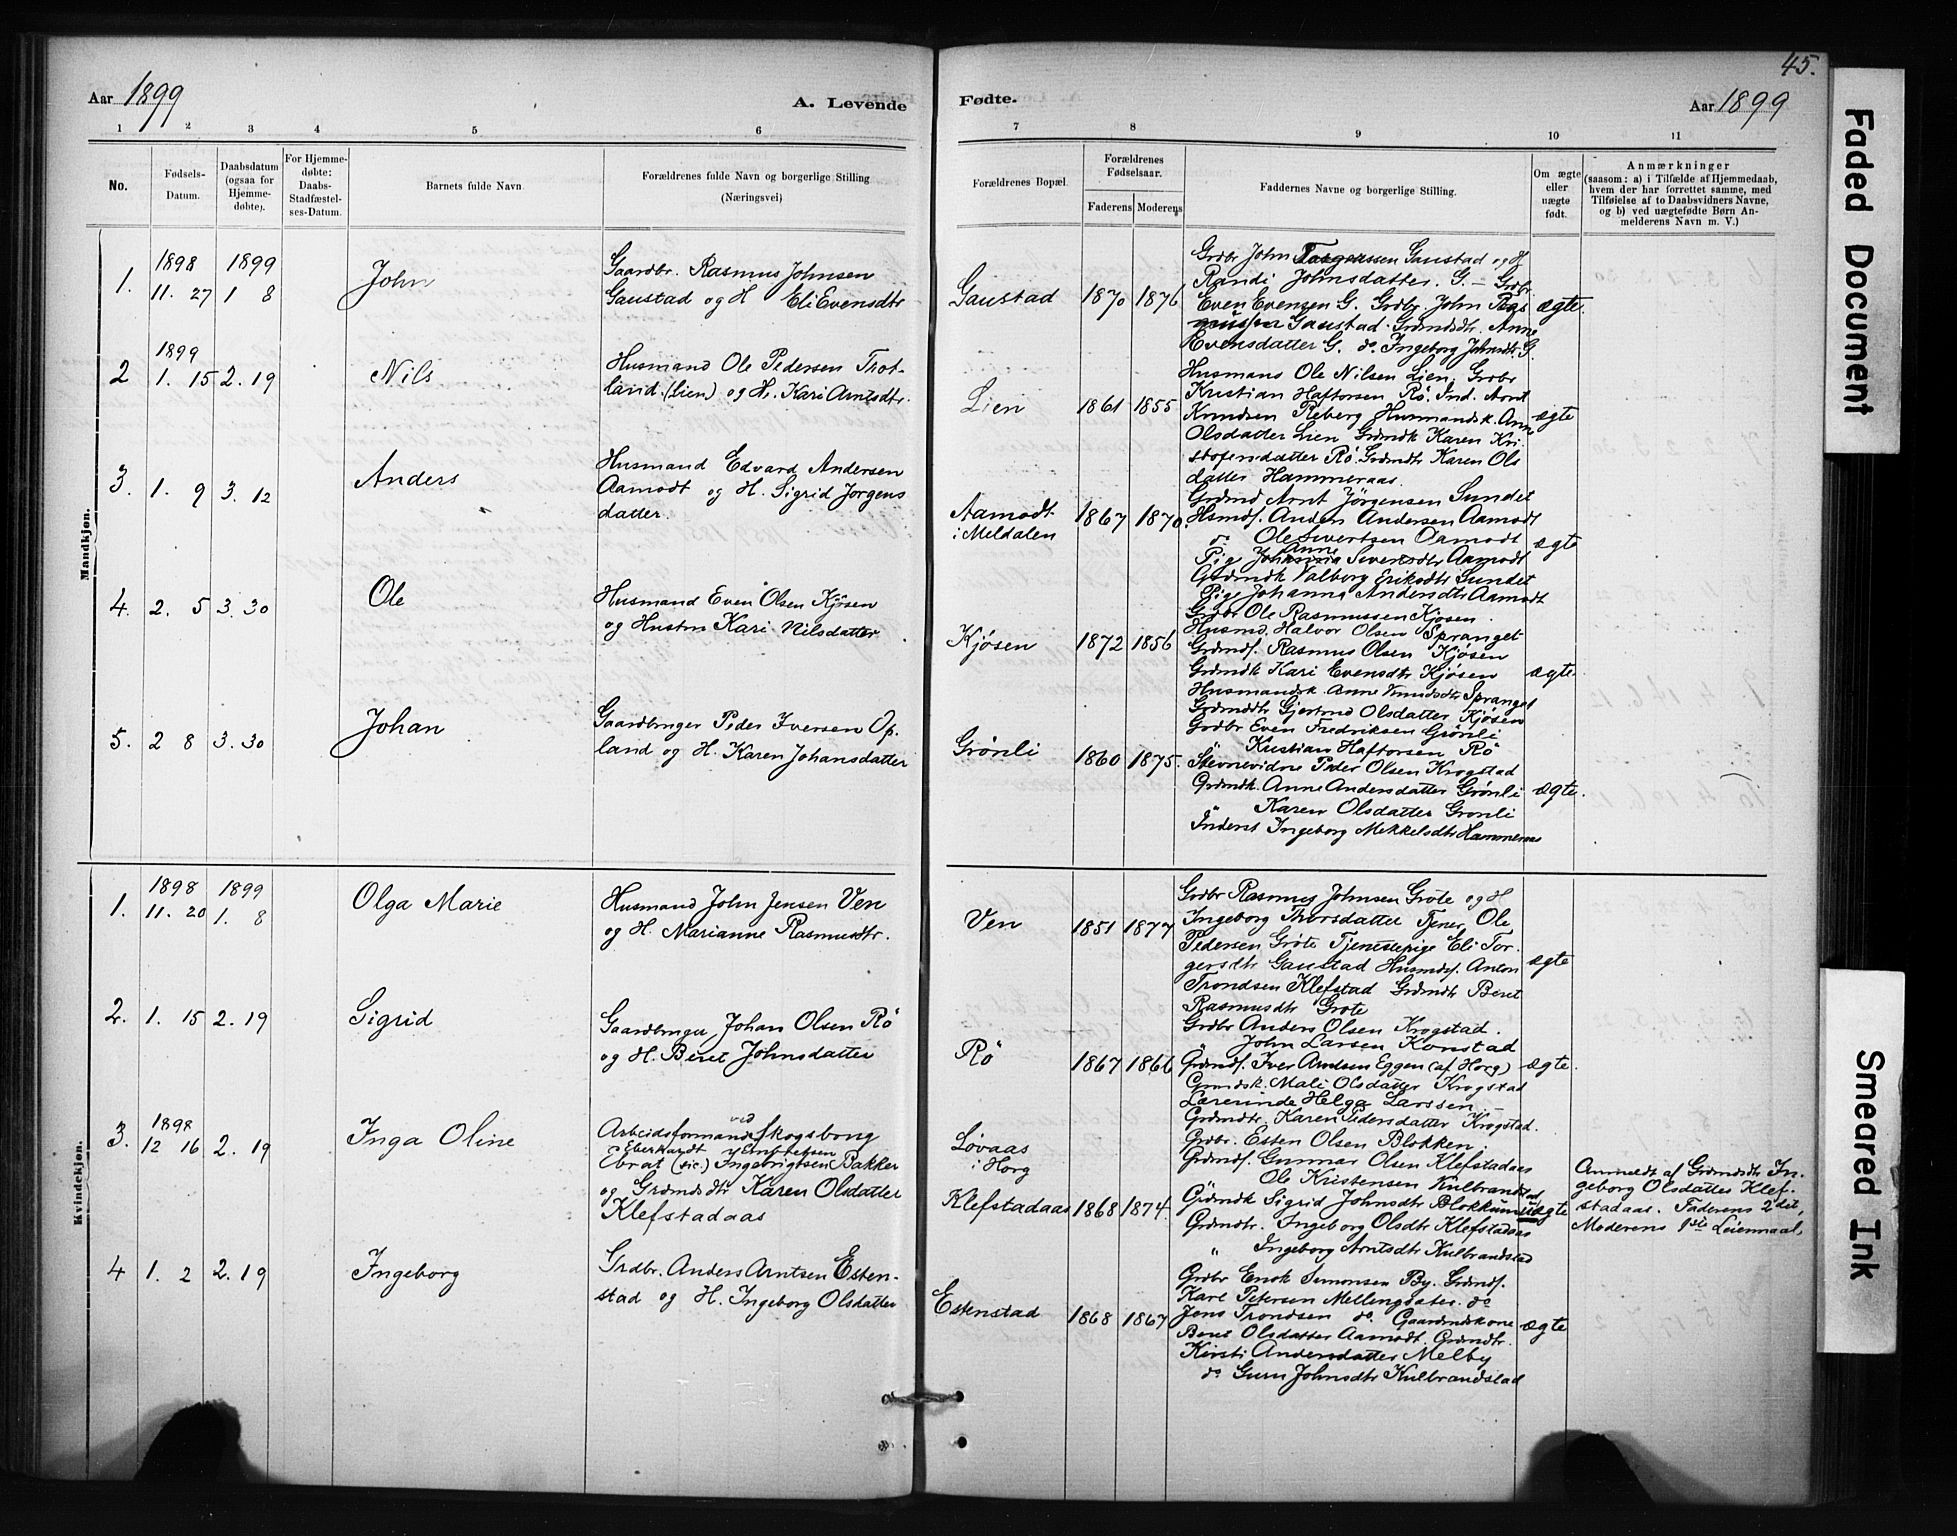 45.
Aar 1899
A. Levende
Fødte.
Aar 1899
1 2 3 4 5 6 7 8 9 10 11
No.
Fødsels-
Datum.
Daabsdatum
(ogsaa for
Hjemme-
døbte).
For Hjemme-
døbte:
Daabs-
Stadfæstel-
ses-Datum.
Barnets fulde Navn
Forældrenes fulde Navn og borgerlige Stilling
(Næringsvei)
Forældrenes Bopæl.
Forældrenes
Fødselsaar.
Faderens Moderens
Faddernes Navne og borgerlige Stilling.
Om ægte
eller
uægte
født.
Anmærkninger
(saasom: a) i Tilfælde af Hjemmedaab,
hvem der har forrettet samme, med
Tilføielse af to Daabsvidners Navne,
og b) ved uægtefødte Børn An-
melderens Navn m. V.)
Mandkjøn.
1.
1898
11. 27
1899
1 8
John
Gaardbr. Rasmus Johnsen
Gaustad og H Eli Evensdtr
Gaustad
1870 1876
Grdbr John Gaustad og H
Randi Johnsdatter G. – Grdbr
Even Evensen G. Grdbr. John Ras
mussen Gaustad. Grdmdsdtr. Anne
Evensdatter G. do. Ingeborg Johnsdtr. G.
ægte.
2
1899
1. 15
2. 19
Nils
Husmand Ole Pedersen Trot-
land (Lien) og H. Kari Arntsdtr.
Lien
1861 1855
Husmans Ole Nilsen Lien, Grdbr
Kristian Haftorsen Rö. Ind. Arnt
Knudsen Reberg Husmandsk. Anne
Olsdatter Lien Grdmdk Karen Kri-
stofersdatter Rö. Grdmdtr Karen Ols
datter Hammeraas.
ægte
3.
1. 9
3. 12
Anders
Husmand Edvard Andersen
Aamodt og H. Sigrid Jørgens
datter.
Aamodt
i Meldalen
1867 1870
Grdmd Arnt Jörgensen Sundet
Hsmds. Anders Andersen Aamodt
do Ole Sivertsen Aamodt
Anne
Pig Johanna Sivertsdtr Aamodt
Grdmdk Valborg Eriksdtr Sundet
Pige Johanna Andersdtr Aamodt
ægte
4.
2. 5
3. 30
Ole
Husmand Even Olsen Kjösen
og Hustru Kari Nilsdatter
Kjösen
1872 1856
Grdbr Ole Rasmussen Kjösen.
Husmd. Halvor Olsen Spranget
Grdmds. Rasmus Olsen Kjösen
Grdmdk Kari Evensdtr Kjösen
Husmandsk. Anne Knudsdtr Spranget
Grdmdtr Gjertrud Olsdatter Kjösen
ægte.
5.
2 8
3. 30
Johan
Gaardbruger Peder Iversen Op-
land og H. Karen Johansdatter
Grönli
1860 1875.
Grdbr Even Fredriksen Grönli
" Kristian Haftorsen Rö
Stevnevidne Peder Olsen Krogstad
Grdmdk. Anne Andersdatter Grönli
" Karen Olsdatter Grönli
Inderst Ingeborg Mekkelsdtr Hammeraas
ægte.
Kvindekjøn.
1.
1898
11. 20
1899
1. 8
Olga Marie
Husmand John Jensen Ven
og H. Marianne Rasmusdtr.
Ven
1851 1877
Grdbr Rasmus Johnsen Gröte og H
Ingeborg Thorsdatter Tjener Ole
Pedersen Gröte Tjenestepige Eli Tor-
gersdtr Gaustad Husmds. Anton
Trondsen Klefstad Grdmdtr Beret
Rasmusdtr Grote
ægte
2.
1. 15
2. 19
Sigrid
Gaardbruger Johan Olsen Rö
og H. Beret Johnsdatter
Rö
1867 1866
Grdbr Anders Olsen Krogstad.
" John Larsen Konstad
Grdmds. Iver Arntsen Eggen (af Horg)
Grmdsk. Mali Olsdatter Krogstad
Lærerinde Helga Larssen –
Grdmdtr. Karen Pedersdatter Krogstad.
ægte.
3.
1898
12 16
2. 19
Inga Oline
ved
Arbeidsformand Skogsbong
Eberhardt
Ebrat (sic.) Ingebrigtsen Bakker
og Grdmdsdtr Karen Olsdatter
Klefstadaas
Løvaas
i Horg
Klefstadaas
1868 1874.
Grdbr. Esten Olsen Blokken.
Grdmds. Gunnar Olsen Klefstadaas
Ole Kristensen Kulbrandstad
Grdmdk Sigrid Johnsdtr Blokkum
Grdmdtr. Ingeborg Olsdtr Klefstadaas
" Ingeborg Arntsdtr Kulbrandstad
uægte
Anmeldt af Grdmdsdtr In-
geborg Olsdatter Klef-
stadaas. Faderens 2det,
Moderens 1ste Leiermaal,
4
1. 2
2. 19
Ingeborg
Grdbr. Anders Arntsen Esten-
stad og H. Ingeborg Olsdatter
Estenstad
1868 1867
Grdbr Enok Simonsen By. Grdmds.
Karl Petersen Mellingsæter. do
Jens Trondsen do. Gaardmdskone
Beret Olsdatter Aamodt. Grdmdtr.
Kirsti Andersdatter Melby
do Guru Johnsdtr Kulbrandstad
ægte
Faded Document
Smeared Ink